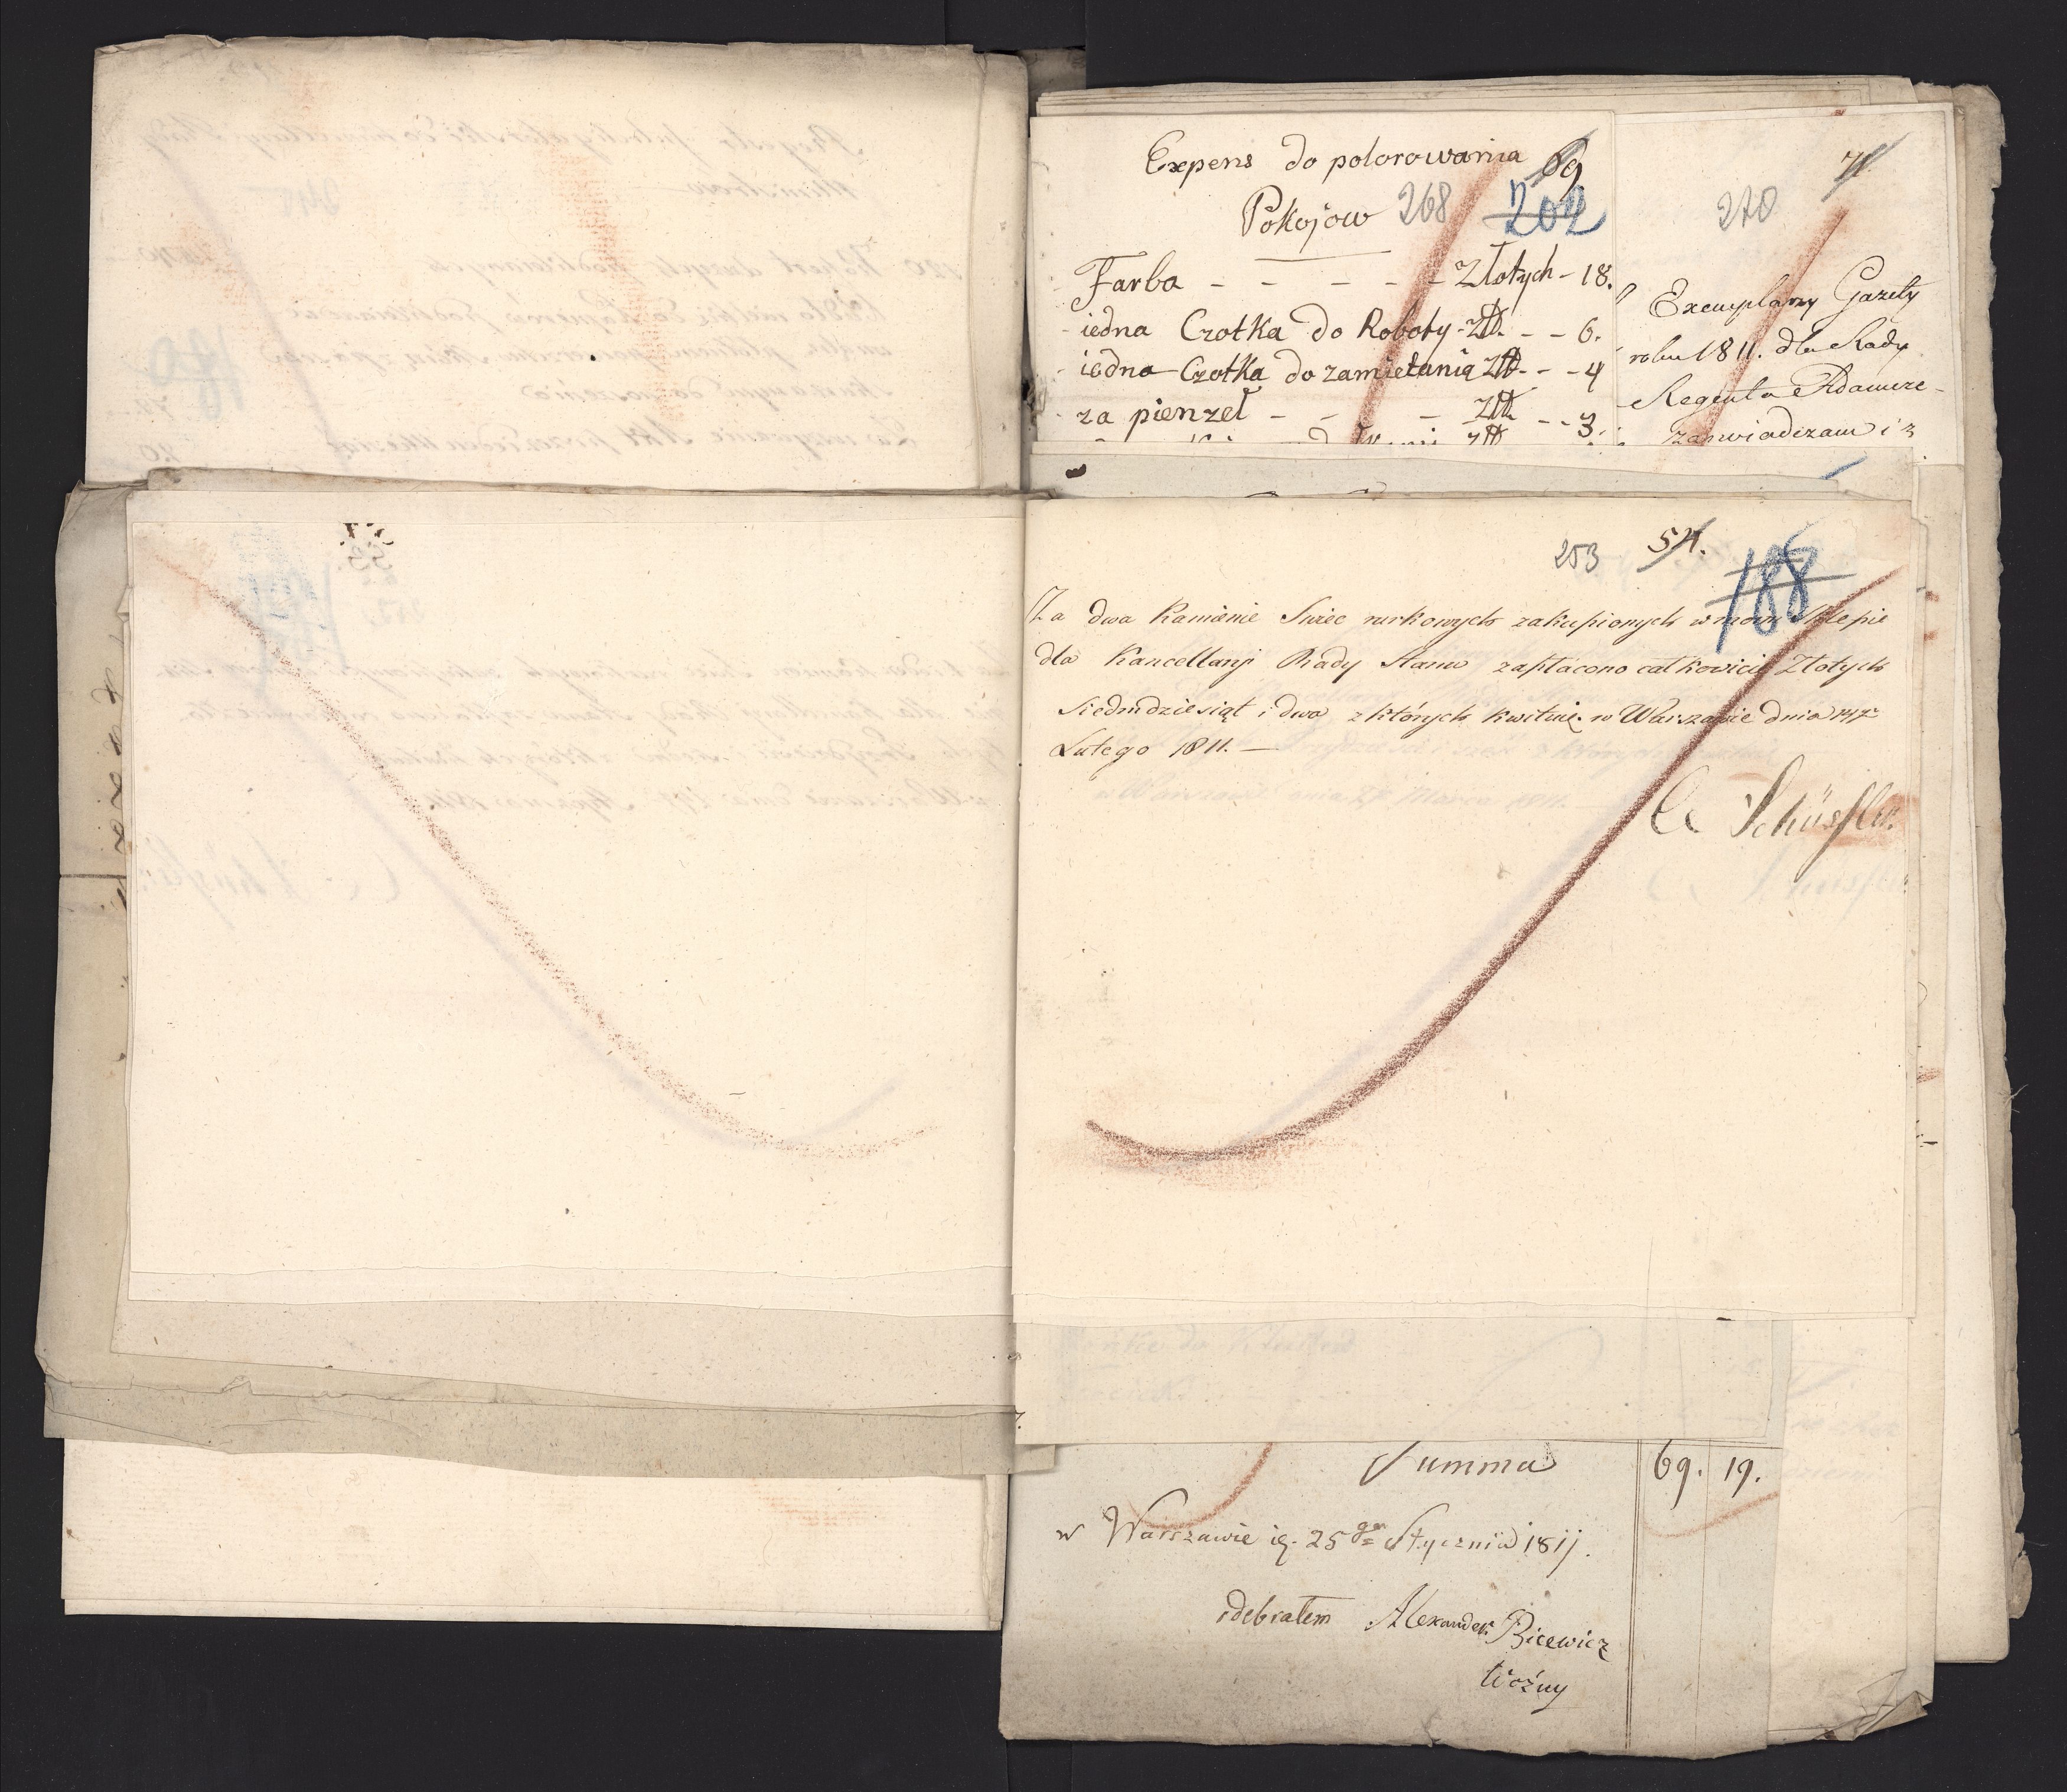 Expens do polorowania 69
Pokojow 268 202
Farba - - - - - Złotych - 18.
iedna Czotka do Roboty - Złt. - - 6.
iedna Czotka do zamiełania Złt - - 4
za pienzel - - - Złt - - 3.
71
270
Exemplarzy Gazety
roku 1811. dla Rady
Regenta Adamcze-
zaswiadczam i z
253 54. 188
Za dwa Kamienie Swiec rurkowych zakupionych w moim Sklepie
dla Kancellaryi Rady Stanu zapłacono całkowicie Złotych
siedmdziesiąt i dwa z których kwituię. w Warszawie dnia
Lutego 1811. —
C Schüssler.
Summa 69. 19.
w Warszawie ig. 25 go Stycznia 1811.
odebrałem Alexander Bicewicz
Woźny